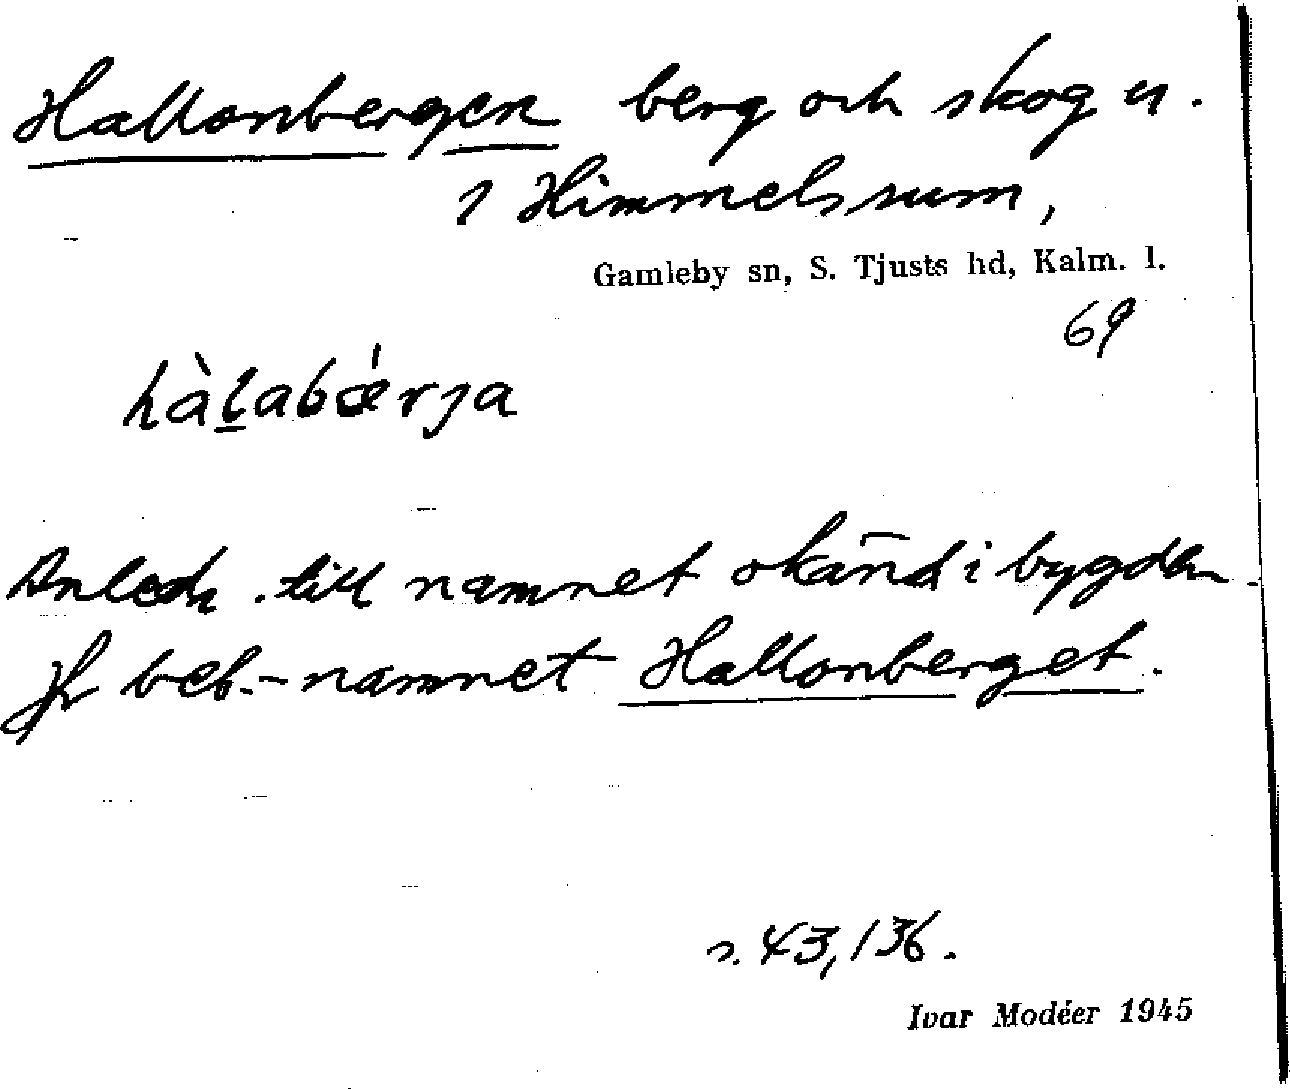 Hallonbergen berg och skog n.
i Himmelsrum,
Gamleby sn, S. Tjusts hd, Kalm. l.
69
hàḻabǽrja
Anledn. till namnet okänd i bygden.
Jfr beb.-namnet Hallonberget.
s. 43, 136.
Ivar Modéer 1945